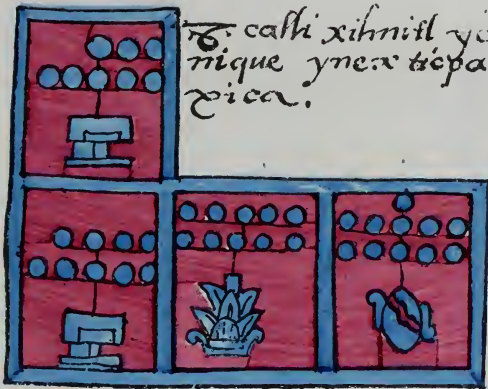 8. calli xihuitl
nique ynex ticpa
xica.